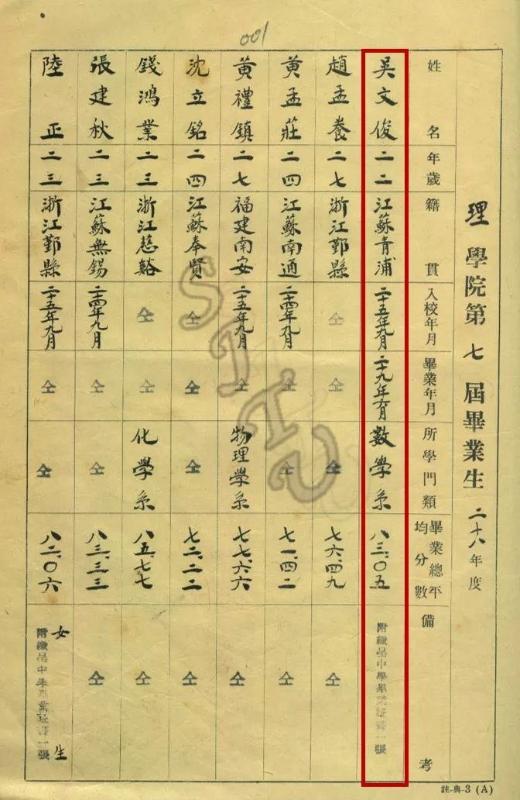 001
理學院第七屆畢業生 二十八年度
姓名 年歲 籍貫 入校年月 畢業年月 所學門類 畢業總平均分數 備考
吳文俊 二二 江蘇青浦 二十五年九月 二十九年 月 數學系 八三.〇五 附繳 中學畢業証書一張
趙孟養 二七 浙江鄞縣 仝 仝 仝 七六.四九 仝
黄孟莊 二四 江蘇南通 二十四年九月 仝 仝 七一.四二 仝
黄禮鎮 二七 福建南安 二十五年九月 仝 物理學系 七七.六六 仝
沈立銘 二四 江蘇奉賢 仝 仝 仝 七二.二二 仝
錢鴻業 二三 浙江慈谿 仝 仝 化學系 八五.七七 仝
張建秋 二三 江蘇無錫 二十四年九月 仝 仝 八三.三三 仝
陸正 二三 浙江鄞縣 二十五年九月 仝 仝 八二.〇六 女生 附繳 中 業証書一張
註-典-3 (A)
SJTU